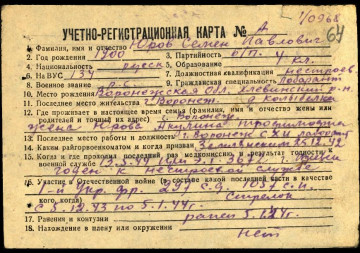 4/0968
64
УЧЕТНО-РЕГИСТРАЦИОННАЯ КАРТА № А
1. Фамилия, имя и отчество Юров Семен Павлович
2. Год рождения 1900 3. Партийность б/п
4. Национальность русск. 5. Образование 4 кл.
6. На ВУС 134 7. Должностная квалификация нестроев.
8. Военное звание р-с 9. Гражданская специальность лаборант
10. Место рождения Воронежская обл. Хлевинский р-н
11. Последнее место жительства г. Воронеж
12. Где проживает в настоящее время семья (фамилия, имя и отчество жены или
родителей и точный их адрес) г. Воронеж
жена Юрова Акулина
13. Последнее место работы и должность г. Воронеж СХИ
14. Каким райгорвоенкоматом и когда призван 25.12.42
15. Когда и где проходил последний раз медкомиссию и результат годности к
военной службе
годен к нестроевой службе
16. Участие в Отечественной войне (в составе какой последней части в качестве
кого, когда) 1-й Укр. фр. 297 С.Д. 1057 с.п.
стрелок
с 5.12.43 по 5.1.44г.
17. Ранения и контузии ранен 5.1.44г.
18. Нахождение в плену или окружении нет